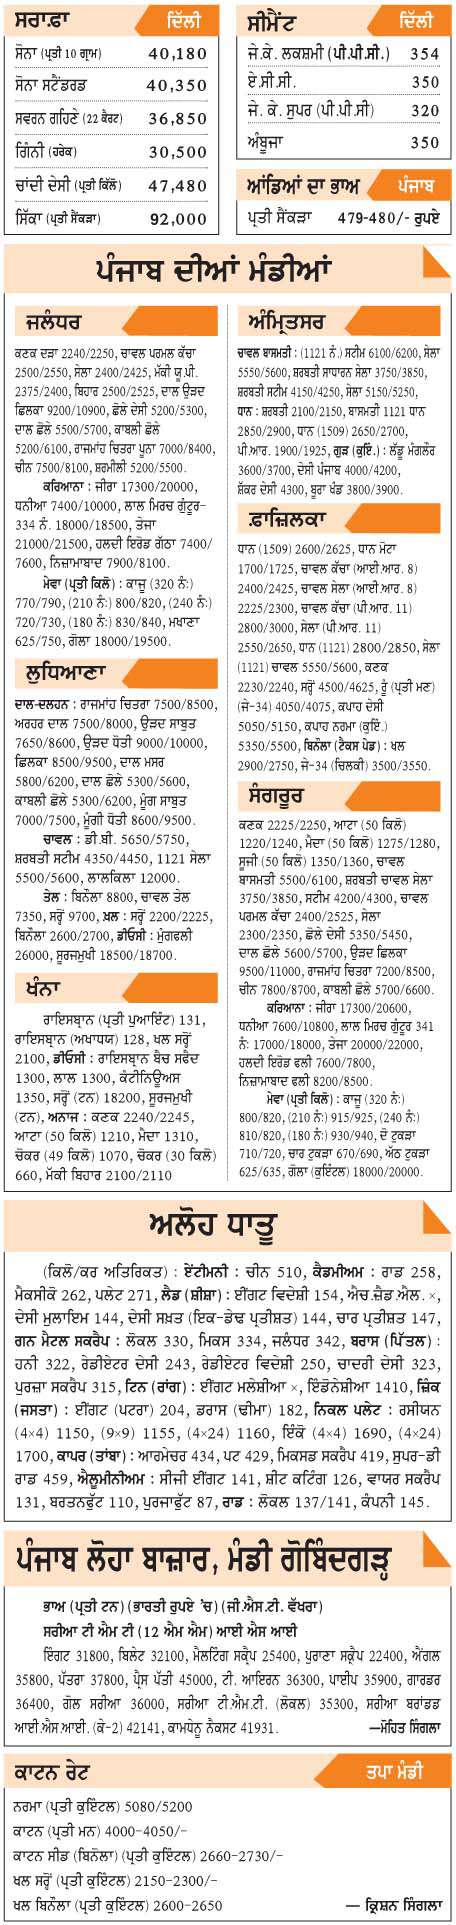 ਸਰਾ.ਫ਼ਾ ਦਿੱਲੀ
ਸੋਨਾ (ਪ੍ਰਤੀ 10 ਗ੍ਰਾਮ) 40,180
ਸੋਨਾ ਸਟੈਂਡਰਡ 40,350
ਸਵਰਨ ਗਹਿਣੇ (22 ਕੈਰਟ) 36,850
ਗਿੰਨੀ (ਹਰੇਕ) 30,500
ਚਾਂਦੀ ਦੇਸੀ (ਪ੍ਰਤੀ ਕਿੱਲੋ) 47,480
ਸਿੱਕਾ (ਪ੍ਰਤੀ ਸੈਂਕੜਾ) 92,000
ਸੀਮੈਂਟ ਦਿੱਲੀ
ਜੇ.ਕੇ. ਲਕਸ਼ਮੀ (ਪੀ.ਪੀ.ਸੀ.) 354
ਏ.ਸੀ.ਸੀ. 350
ਜੇ. ਕੇ. ਸੁਪਰ (ਪੀ.ਪੀ.ਸੀ) 320
ਅੰਬੂਜਾ 350
ਆਂਡਿਆਂ ਦਾ ਭਾਅ ਪੰਜਾਬ
ਪ੍ਰਤੀ ਸੈਂਕੜਾ 479-480/- ਰੁਪਏ
ਪੰਜਾਬ ਦੀਆਂ ਮੰਡੀਆਂ
ਜਲੰਧਰ
ਕਣਕ ਦੜਾ 2240/2250, ਚਾਵਲ ਪਰਮਲ ਕੱਚਾ
2500/2550, ਸੇਲਾ 2400/2425, ਮੱਕੀ ਯੂ.ਪੀ.
2375/2400, ਬਿਹਾਰ 2500/2525, ਦਾਲ ਉੜਦ
ਛਿਲਕਾ 9200/10900, ਛੋਲੇ ਦੇਸੀ 5200/5300,
ਦਾਲ ਛੋਲੇ 5500/5700, ਕਾਬਲੀ ਛੋਲੇ
5200/6100, ਰਾਜਮਾਂਹ ਚਿਤਰਾ ਪੂਨਾ 7000/8400,
ਚੀਨ 7500/8100, ਸ਼ਰਮੀਲੀ 5200/5500.
ਕਰਿਆਨਾ : ਜੀਰਾ 17300/20000,
ਧਨੀਆ 7400/10000, ਲਾਲ ਮਿਰਚ ਗੁੰਟੂਰ-
334 ਨੰ. 18000/18500, ਤੇਜਾ
21000/21500, ਹਲਦੀ ਇਰੋਡ ਗੱਠਾ 7400/
7600, ਨਿਜ਼ਾਮਾਬਾਦ 7900/8100.
ਮੇਵਾ (ਪ੍ਰਤੀ ਕਿਲੋ) : ਕਾਜੂ (320 ਨੰ:)
770/790, (210 ਨੰ:) 800/820, (240 ਨੰ:)
720/730, (180 ਨੰ:) 830/840, ਮਖਾਣਾ
625/750, ਗੋਲਾ 18000/19500.
ਲੁਧਿਆਣਾ
ਦਾਲ-ਦਲਹਨ : ਰਾਜਮਾਂਹ ਚਿਤਰਾ 7500/8500,
ਅਰਹਰ ਦਾਲ 7500/8000, ਉੜਦ ਸਾਬੁਤ
7650/8600, ਉੜਦ ਧੋਤੀ 9000/10000,
ਛਿਲਕਾ 8500/9500, ਦਾਲ ਮਸਰ
5800/6200, ਦਾਲ ਛੋਲੇ 5300/5600,
ਕਾਬਲੀ ਛੋਲੇ 5300/6200, ਮੂੰਗ ਸਾਬੁਤ
7000/7500, ਮੂੰਗੀ ਧੋਤੀ 8600/9500.
ਚਾਵਲ : ਡੀ.ਬੀ. 5650/5750,
ਸ਼ਰਬਤੀ ਸਟੀਮ 4350/4450, 1121 ਸੇਲਾ
5500/5600, ਲਾਲਕਿਲਾ 12000.
ਤੇਲ : ਬਿਨੌਲਾ 8800, ਚਾਵਲ ਤੇਲ
7350, ਸਰ੍ਹੋਂ 9700, ਖ਼ਲ : ਸਰ੍ਹੋਂ 2200/2225,
ਬਿਨੌਲਾ 2600/2700, ਡੀਓਸੀ : ਮੂੰਗਫਲੀ
26000, ਸੂਰਜਮੁਖੀ 18500/18700.
ਖੰਨਾ
ਰਾਇਸਬ੍ਰਾਨ (ਪ੍ਰਤੀ ਪੁਆਇੰਟ) 131,
ਰਾਇਸਬ੍ਰਾਨ (ਅਖਾਧਯ) 128, ਖਲ ਸਰ੍ਹੋਂ
2100, ਡੀਓਸੀ : ਰਾਇਸਬ੍ਰਾਨ ਬੈਚ ਸਫੈਦ
1300, ਲਾਲ 1300, ਕੰਟੀਨਿਊਅਸ
1350, ਸਰ੍ਹੋਂ (ਟਨ) 18200, ਸੂਰਜਮੁਖੀ
(ਟਨ), ਅਨਾਜ : ਕਣਕ 2240/2245,
ਆਟਾ (50 ਕਿਲੋ) 1210, ਮੈਦਾ 1310,
ਚੋਕਰ (49 ਕਿਲੋ) 1070, ਚੋਕਰ (30 ਕਿਲੋ)
660, ਮੱਕੀ ਬਿਹਾਰ 2100/2110
ਅੰਮ੍ਰਿਤਸਰ
ਚਾਵਲ ਬਾਸਮਤੀ : (1121 ਨੰ.) ਸਟੀਮ 6100/6200, ਸੇਲਾ
5550/5600, ਸ਼ਰਬਤੀ ਸਾਧਾਰਨ ਸੇਲਾ 3750/3850,
ਸ਼ਰਬਤੀ ਸਟੀਮ 4150/4250, ਸੇਲਾ 5150/5250,
ਧਾਨ : ਸ਼ਰਬਤੀ 2100/2150, ਬਾਸਮਤੀ 1121 ਧਾਨ
2850/2900, ਧਾਨ (1509) 2650/2700,
ਪੀ.ਆਰ. 1900/1925, ਗੁੜ (ਕੁਇੰ.) : ਲੱਡੂ ਮੰਗਲੌਰ
3600/3700, ਦੇਸੀ ਪੰਜਾਬ 4000/4200,
ਸ਼ੱਕਰ ਦੇਸੀ 4300, ਬੂਰਾ ਖੰਡ 3800/3900.
ਫ਼ਾਜ਼ਿਲਕਾ
ਧਾਨ (1509) 2600/2625, ਧਾਨ ਮੋਟਾ
1700/1725, ਚਾਵਲ ਕੱਚਾ (ਆਈ.ਆਰ. 8)
2400/2425, ਚਾਵਲ ਸੇਲਾ (ਆਈ.ਆਰ. 8)
2225/2300, ਚਾਵਲ ਕੱਚਾ (ਪੀ.ਆਰ. 11)
2800/3000, ਸੇਲਾ (ਪੀ.ਆਰ. 11)
2550/2650, ਧਾਨ (1121) 2800/2850, ਸੇਲਾ
(1121) ਚਾਵਲ 5550/5600, ਕਣਕ
2230/2240, ਸਰ੍ਹੋਂ 4500/4625, ਰੂੰ (ਪ੍ਰਤੀ ਮਣ)
(ਜੇ-34) 4050/4075, ਕਪਾਹ ਦੇਸੀ
5050/5150, ਕਪਾਹ ਨਰਮਾ (ਕੁਇੰ.)
5350/5500, ਬਿਨੌਲਾ (ਟੈਕਸ ਪੇਡ) : ਖਲ
2900/2750, ਜੇ-34 (ਚਿਲਕੀ) 3500/3550.
ਸੰਗਰੂਰ
ਕਣਕ 2225/2250, ਆਟਾ (50 ਕਿਲੋ)
1220/1240, ਮੈਦਾ (50 ਕਿਲੋ) 1275/1280,
ਸੂਜੀ (50 ਕਿਲੋ) 1350/1360, ਚਾਵਲ
ਬਾਸਮਤੀ 5500/6100, ਸ਼ਰਬਤੀ ਚਾਵਲ ਸੇਲਾ
3750/3850, ਸਟੀਮ 4200/4300, ਚਾਵਲ
ਪਰਮਲ ਕੱਚਾ 2400/2525, ਸੇਲਾ
2300/2350, ਛੋਲੇ ਦੇਸੀ 5350/5450,
ਦਾਲ ਛੋਲੇ 5600/5700, ਉੜਦ ਛਿਲਕਾ
9500/11000, ਰਾਜਮਾਂਹ ਚਿਤਰਾ 7200/8500,
ਚੀਨ 7800/8700, ਕਾਬਲੀ ਛੋਲੇ 5700/6600.
ਕਰਿਆਨਾ : ਜੀਰਾ 17300/20600,
ਧਨੀਆ 7600/10800, ਲਾਲ ਮਿਰਚ ਗੁੰਟੂਰ 341
ਨੰ: 17000/18000, ਤੇਜਾ 20000/22000,
ਹਲਦੀ ਇਰੋਡ ਫਲੀ 7600/7800,
ਨਿਜ਼ਾਮਾਬਾਦ ਫਲੀ 8200/8500.
ਮੇਵਾ (ਪ੍ਰਤੀ ਕਿਲੋ) : ਕਾਜੂ (320 ਨੰ:)
800/820, (210 ਨੰ:) 915/925, (240 ਨੰ:)
810/820, (180 ਨੰ:) 930/940, ਦੋ ਟੁਕੜਾ
710/720, ਚਾਰ ਟੁਕੜਾ 670/690, ਅੱਠ ਟੁਕੜਾ
625/635, ਗੋਲਾ (ਕੁਇੰਟਲ) 18000/20000.
ਅਲੋਹ ਧਾਤੂ
(ਕਿਲੋ/ਕਰ ਅਤਿਰਿਕਤ) : ਏਂਟੀਮਨੀ : ਚੀਨ 510, ਕੈਡਮੀਅਮ : ਰਾਡ 258,
ਮੈਕਸੀਕੋ 262, ਪਲੇਟ 271, ਲੈਡ (ਸ਼ੀਸ਼ਾ) : ਈਂਗਟ ਵਿਦੇਸ਼ੀ 154, ਐਚ.ਜ਼ੈਡ.ਐਲ. ×,
ਦੇਸੀ ਮੁਲਾਇਮ 144, ਦੇਸੀ ਸਖ਼ਤ (ਇਕ-ਡੇਢ ਪ੍ਰਤੀਸ਼ਤ) 144, ਚਾਰ ਪ੍ਰਤੀਸ਼ਤ 147,
ਗਨ ਮੈਟਲ ਸਕਰੈਪ : ਲੋਕਲ 330, ਮਿਕਸ 334, ਜਲੰਧਰ 342, ਬਰਾਸ (ਪਿੱਤਲ) :
ਹਨੀ 322, ਰੇਡੀਏਟਰ ਦੇਸੀ 243, ਰੇਡੀਏਟਰ ਵਿਦੇਸ਼ੀ 250, ਚਾਦਰੀ ਦੇਸੀ 323,
ਪੁਰਜ਼ਾ ਸਕਰੈਪ 315, ਟਿਨ (ਰਾਂਗ) : ਈਂਗਟ ਮਲੇਸ਼ੀਆ ×, ਇੰਡੋਨੇਸ਼ੀਆ 1410, ਜ਼ਿੰਕ
(ਜਸਤਾ) : ਈਂਗਟ (ਪਟਰਾ) 204, ਡਰਾਸ (ਢੀਮਾ) 182, ਨਿਕਲ ਪਲੇਟ : ਰਸੀਯਨ
(4×4) 1150, (9×9) 1155, (4×24) 1160, ਇੰਕੋ (4×4) 1690, (4×24)
1700, ਕਾਪਰ (ਤਾਂਬਾ) : ਆਰਮੇਚਰ 434, ਪਟ 429, ਮਿਕਸਡ ਸਕਰੈਪ 419, ਸੁਪਰ-ਡੀ
ਰਾਡ 459, ਐਲੂਮੀਨੀਅਮ : ਸੀਜੀ ਈਂਗਟ 141, ਸ਼ੀਟ ਕਟਿੰਗ 126, ਵਾਯਰ ਸਕਰੈਪ
131, ਬਰਤਨਫੁੱਟ 110, ਪੁਰਜਾਫੁੱਟ 87, ਰਾਡ : ਲੋਕਲ 137/141, ਕੰਪਨੀ 145.
ਪੰਜਾਬ ਲੋਹਾ ਬਾਜ਼ਾਰ, ਮੰਡੀ ਗੋਬਿੰਦਗੜ੍ਹ
ਭਾਅ (ਪ੍ਰਤੀ ਟਨ) (ਭਾਰਤੀ ਰੁਪਏ 'ਚ) (ਜੀ.ਐਸ.ਟੀ. ਵੱਖਰਾ)
ਸਰੀਆ ਟੀ ਐਮ ਟੀ (12 ਐਮ ਐਮ) ਆਈ ਐਸ ਆਈ
ਇੰਗਟ 31800, ਬਿਲੇਟ 32100, ਮੈਲਟਿੰਗ ਸਕ੍ਰੈਪ 25400, ਪੁਰਾਣਾ ਸਕ੍ਰੈਪ 22400, ਐਂਗਲ
35800, ਪੱਤਰਾ 37800, ਪ੍ਰੈਸ ਪੱਤੀ 45000, ਟੀ. ਆਇਰਨ 36300, ਪਾਈਪ 35900, ਗਾਰਡਰ
36400, ਗੋਲ ਸਰੀਆ 36000, ਸਰੀਆ ਟੀ.ਐਮ.ਟੀ. (ਲੋਕਲ) 35300, ਸਰੀਆ ਬਰਾਂਡਡ
ਆਈ.ਐਸ.ਆਈ. (ਕੇ-2) 42141, ਕਾਮਧੇਨੂ ਨੈਕਸਟ 41931. —ਮੋਹਿਤ ਸਿੰਗਲਾ
ਕਾਟਨ ਰੇਟ ਤਪਾ ਮੰਡੀ
ਨਰਮਾ (ਪ੍ਰਤੀ ਕੁਇੰਟਲ) 5080/5200
ਕਾਟਨ (ਪ੍ਰਤੀ ਮਨ) 4000-4050/-
ਕਾਟਨ ਸੀਡ (ਬਿਨੋਲਾ) (ਪ੍ਰਤੀ ਕੁਇੰਟਲ) 2660-2730/-
ਖਲ ਸਰ੍ਹੋਂ (ਪ੍ਰਤੀ ਕੁਇੰਟਲ) 2150-2300/-
ਖਲ ਬਿਨੌਲਾ (ਪ੍ਰਤੀ ਕੁਇੰਟਲ) 2600-2650 — ਕ੍ਰਿਸ਼ਨ ਸਿੰਗਲਾ